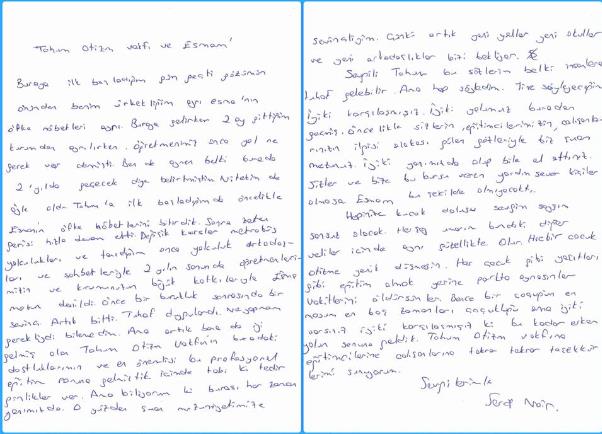 Tohum Otizm vakfı ve Esmam'
Buraya ilk başladığım gün geçti gözümün
önünden benim ürkekliğim ayrı esma'nın
öfke nöbetleri ayrı. Buraya gelirken 2 ay gittiğim
kurumdan ayrılırken. Öğretmenimiz onca yol ne
gerek var demişti. Ben de aynen belki burada
2 yılda geçecek diye belirtmiştim Nitekim de
öyle oldu. Tohum'a ilk başladığımda öncelikle
Esmanın öfke nöbetlerini bitirdik. Sonra zaten
gerisi hızla devam etti. metrobüs
yolculukları ve tanıdığım onca yolculuk arkadaş-
ları ve sohbetleriyle 2 yılın sonunda öğretmenleri-
mizin ve kurumunun büyük katkılarıyla Esma
mezun oldu. Önce bir burukluk sonrasında bir
sevinç. Artık bitti. Tuhaf duygulardı. Ne yapmam
gerektiğini bilemedim. Ama artık bana da iyi
gelmiş olan Tohum Otizm Vakfı'nın buradaki
dostluklarının ve en önemlisi bu profesyonel
eğitim sonuna gelmiştik içimde tabi ki tedir
ginlikler var. Ama biliyorum ki burası her zaman
yanımızda. O yüzden şuan mezuniyetimize
sevinçliyim. Çünkü artık yeni yollar yeni okullar
ve yeni arkadaşlıklar bizi bekliyor.
Sevgili Tohum bu sözlerim belki insanlara
tuhaf gelebilir. Ama hep söyledim. Yine söyleyeceğim
İyiki karşılaşmışız. İyiki yolumuz buradan
geçmiş. Öncelikle sizlerin, eğitimcilerimizin, çalışanla-
rınızın ilgisi alakası güler yüzleriyle biz şuan
mezunuz. İyiki yanımızda olup bile el attınız.
Sizler ve bize bu bursu veren yardım sever kişiler
olmasa Esmam bu şekilde olmayacaktı.
Hepinize kucak dolusu sevgim saygım
sonsuz olacak. Herşey umarım bundaki diğer
veliler içinde aynı güzellikte olur. Hiçbir çocuk
otizme yenik düşmesin. Her çocuk gibi yaşıtları
gibi eğitim almak yerine parkta oynasınlar
vakitlerini öldürsünler. Bence bir çocuğun en
masum en boş zamanları çocukluğu ama iyiki
varsınız iyiki karşılaşmışız ki bu kadar erken
yolun sonuna geldik. Tohum Otizm vakfına
eğitimcilerine çalışanlarına tekrar tekrar teşekkür
lerimi sunuyorum.
Sevgilerimle